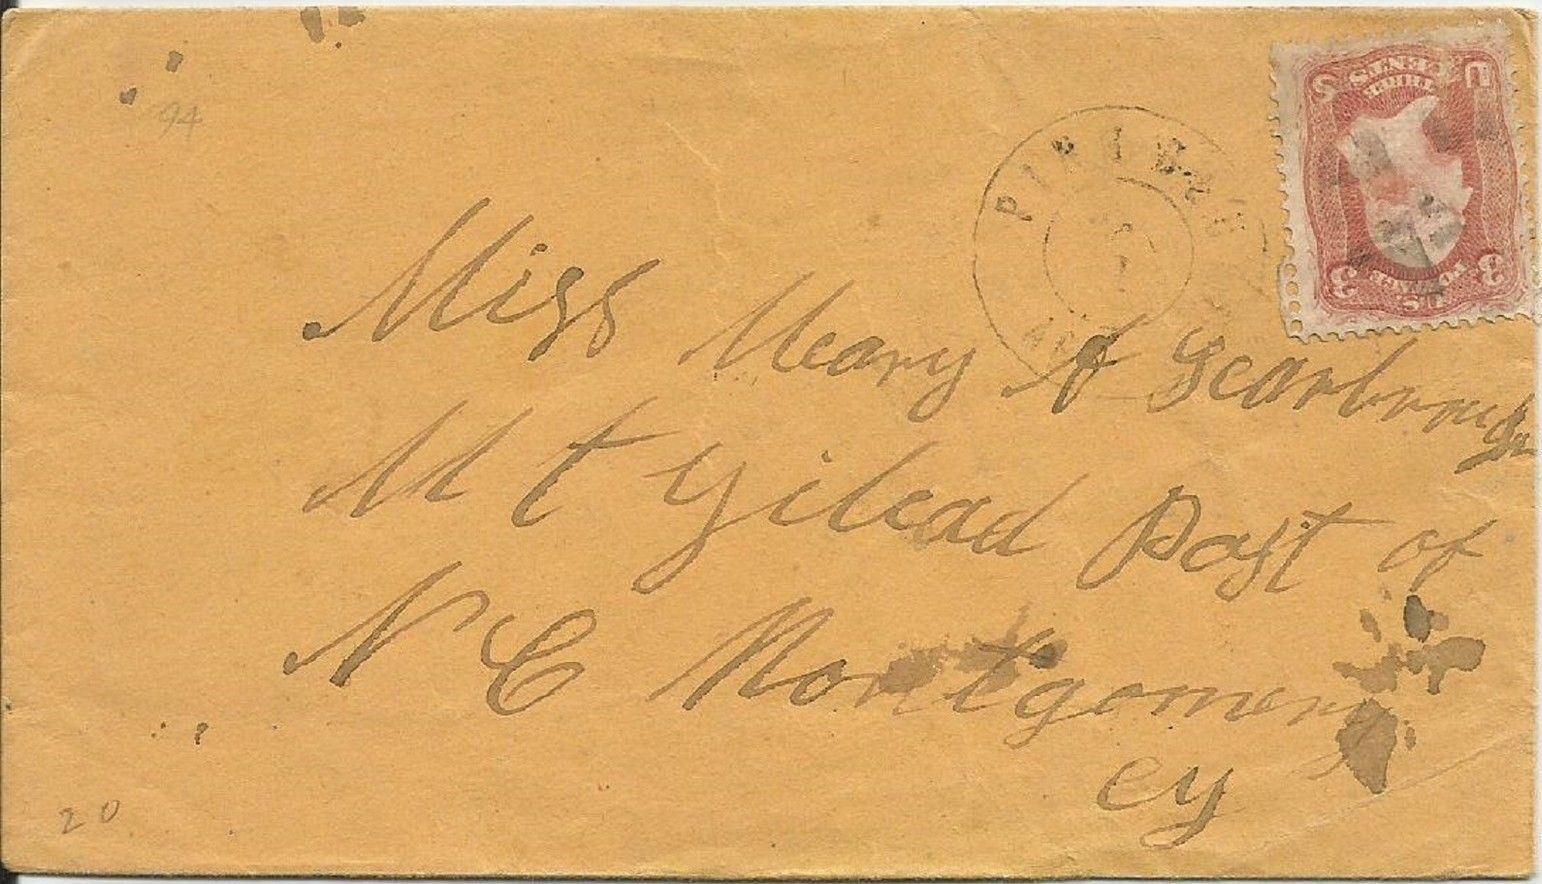 94
U S
THREE CENTS
3 3
U.S. POSTAGE
Miss Meary A Scarbrough
Mt Gilead Post of
N C Montgomery
cy
20